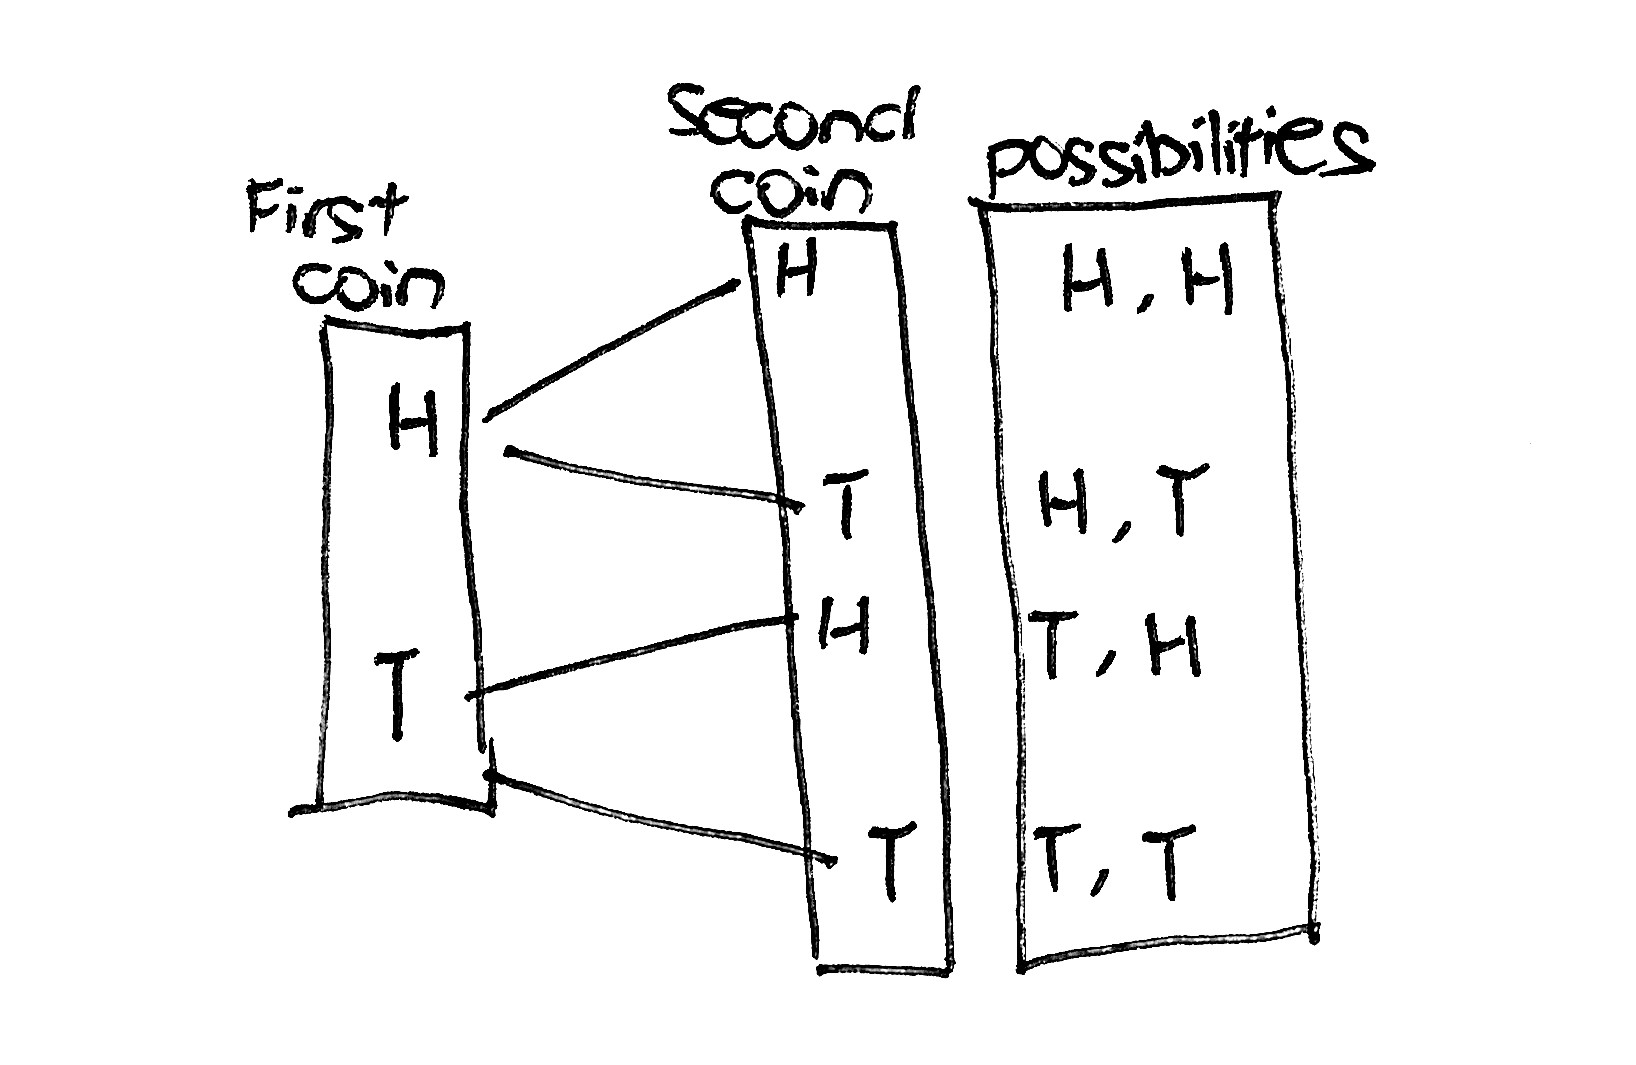 First
coin
H
T
Second
coin
H
T
H
T
possibilities
H, H
H, T
T, H
T, T